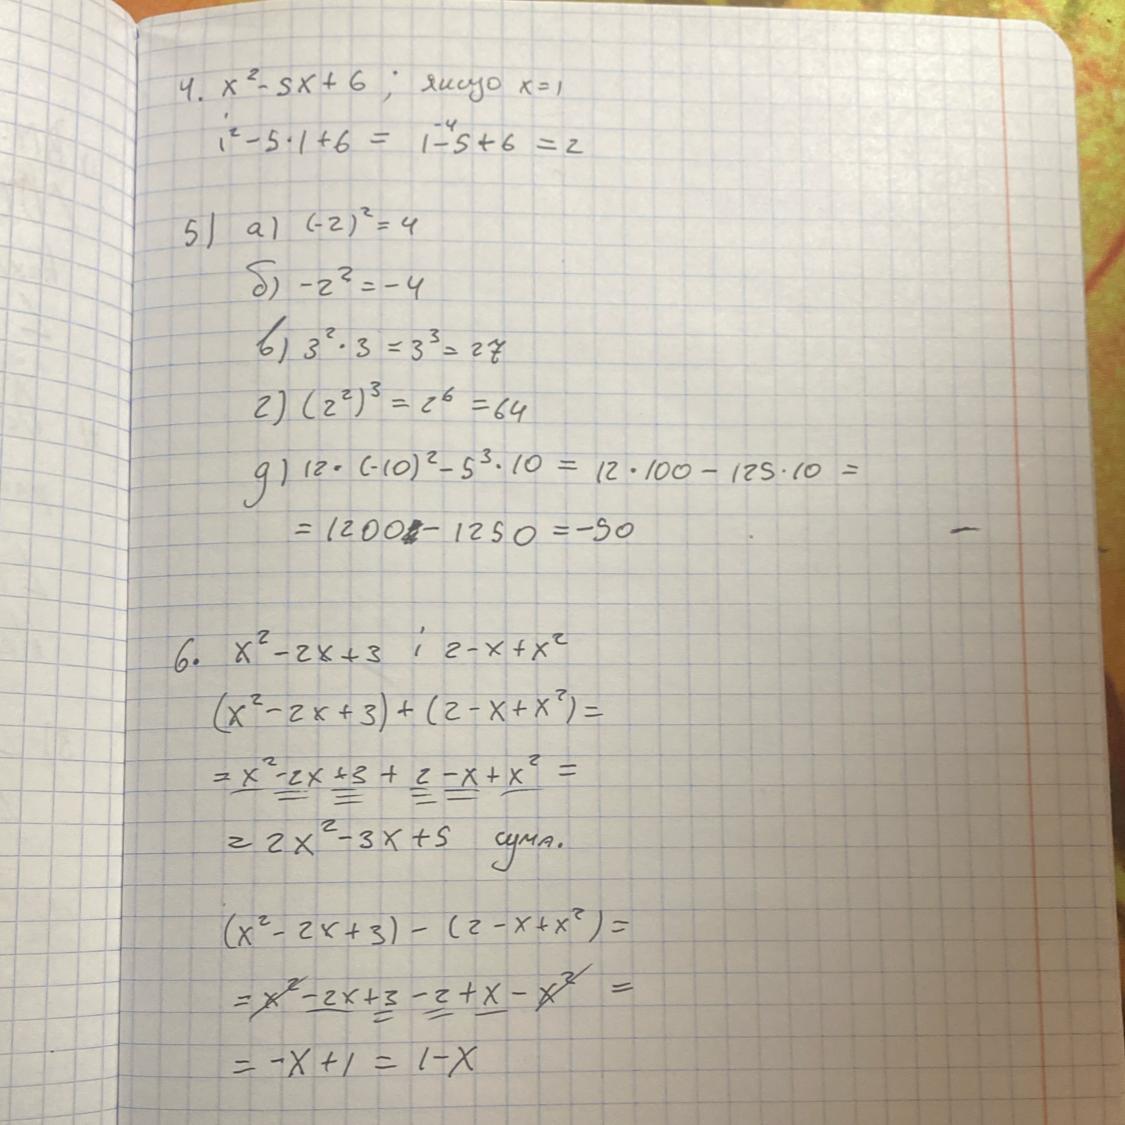 4. x² - 5x + 6 ; якщо x = 1
1² - 5·1 + 6 = 1 - 5 + 6 = 2
-4
5) а) (-2)² = 4
б) -2² = -4
в) 3² · 3 = 3³ = 27
г) (2²)³ = 2⁶ = 64
д) 12 · (-10)² - 5³ · 10 = 12 · 100 - 125 · 10 =
= 1200 - 1250 = -50
6. x² - 2x + 3 і 2 - x + x²
(x² - 2x + 3) + (2 - x + x²) =
= x² - 2x + 3 + 2 - x + x² =
= 2x² - 3x + 5 сума.
(x² - 2x + 3) - (2 - x + x²) =
= x² - 2x + 3 - 2 + x - x² =
= -x + 1 = 1 - x